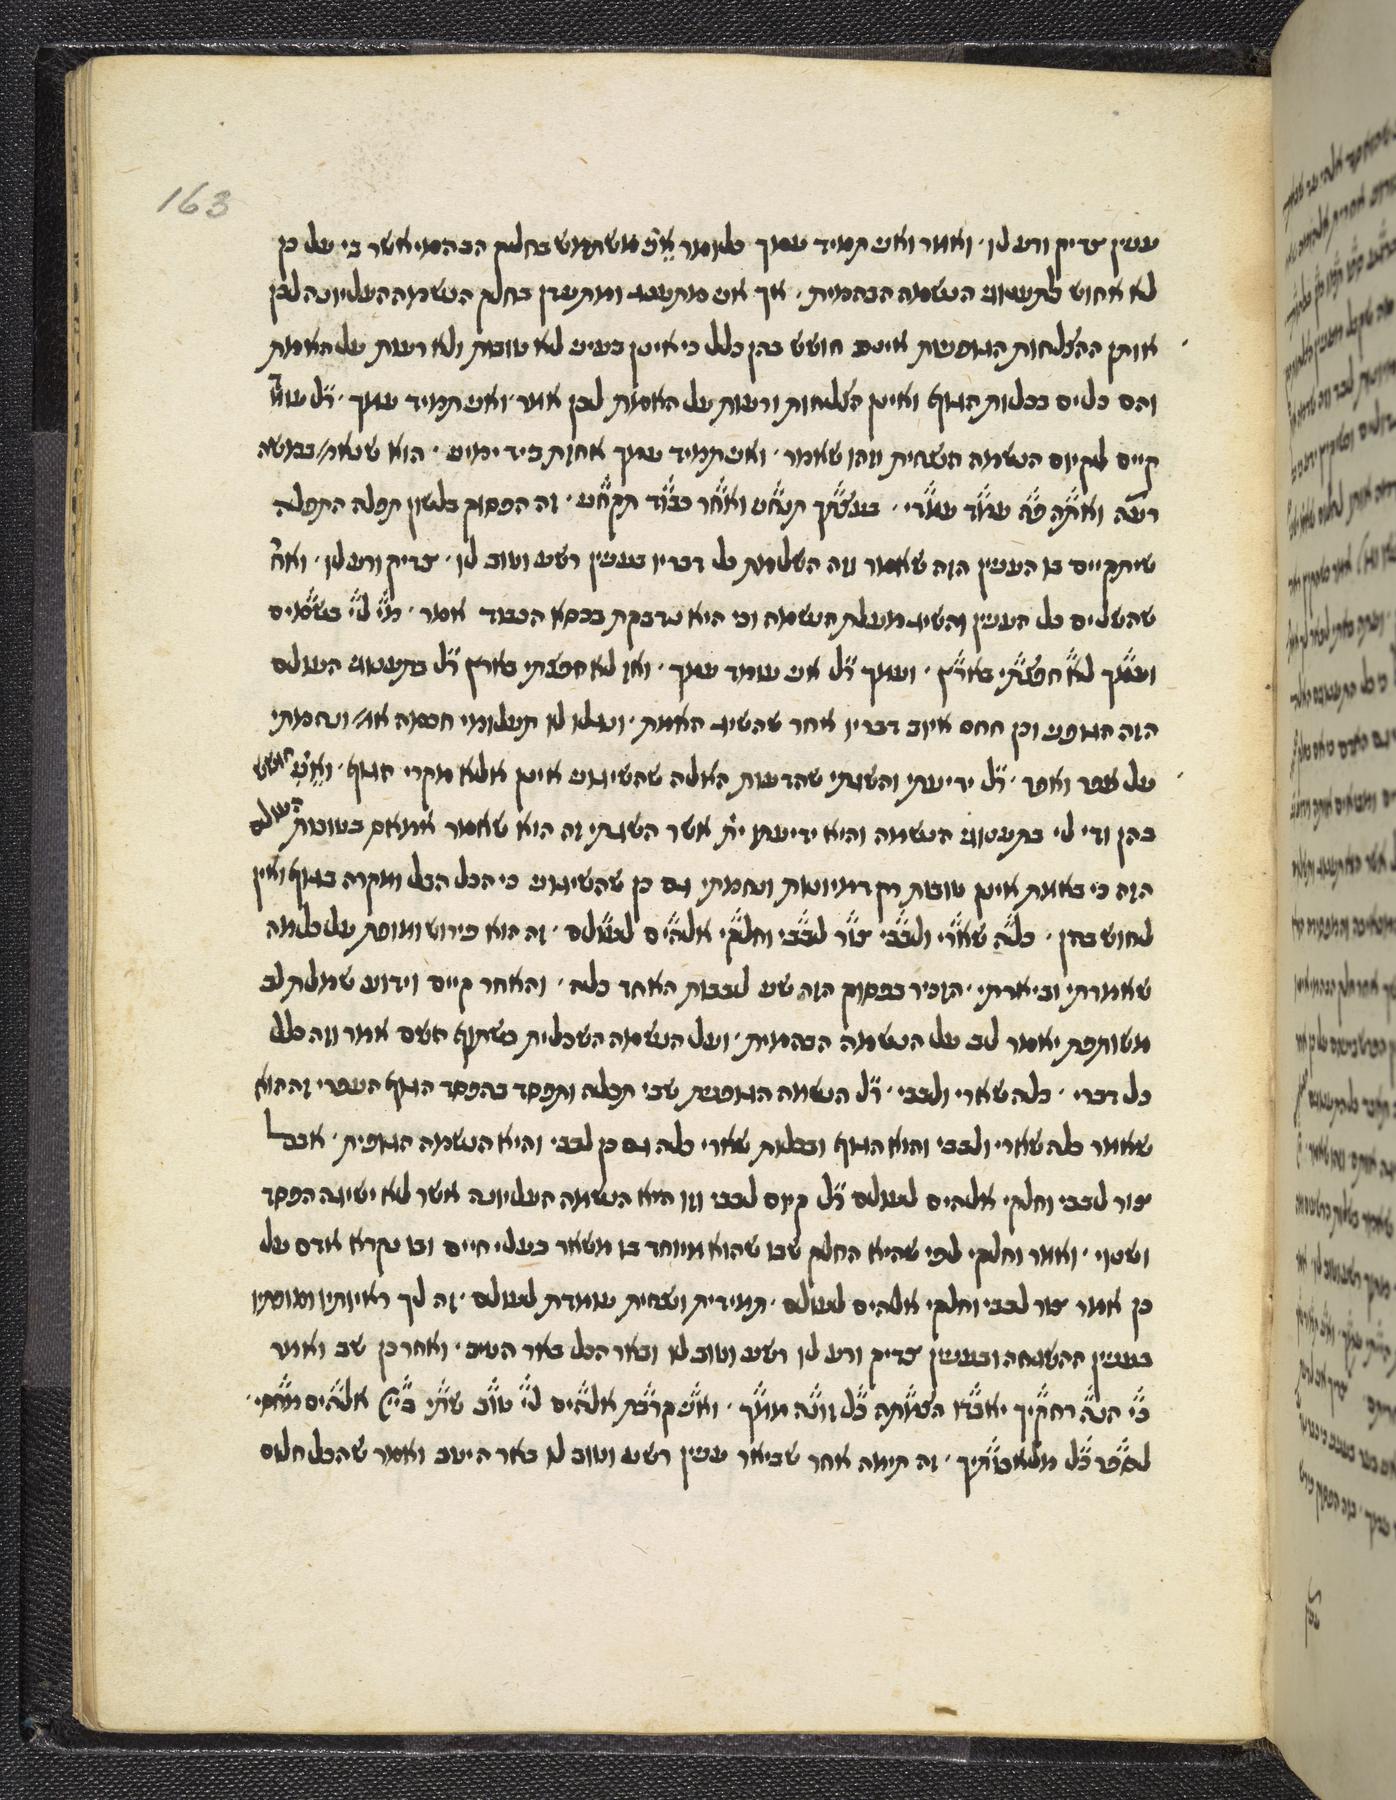 163
ענין צדיק ורע לו · ואמר ואני תמיד עמך כלומר איני משתמש בחלק הבהמי אשר בי על כן
לא אחוש לתענוגי הנשמה הבהמית · אך אני מתענג ומתעדן בחלק הנשמה העליונה לכן
אותן ההצלחות הגופניות אינני חושש בהן כלל כי אינן בעיני לא טובות ולא רעות על האמת
והם כלים בכלות הגוף ואינן הצלחות ורעות על האמת לכן אמר ואני תמיד עמך · ר״ל
קיים בקיום הנשמה הנצחית וזהו שאמר · ואני תמיד עמך אחזת ביד ימיני · הוא שנא׳ במשה
רבינו ואתה פה עמוד עמדי · בעצתך תנחני ואחר כבוד תקחני · זה הפסוק בלשון תפלה התפלל
שיתקיים בו הענין הזה שאמר וזה השלמת כל דבריו בענין רשע וטוב לו · צדיק ורע לו · ואח׳
שהשלים כל הענין והשיג מעלת הנשמה וכי היא נדבקת בכסא הכבוד אמר · מי לי בשמים
ועמך לא חפצתי בארץ · ועמך ר״ל אני עומד עמך · ואז לא חפצתי בארץ ר״ל בתענוגי העולם
הזה הגופני וכן חתם איוב דבריו אחר שהשיג האמת · ונגלו לו תעלומי חכמה אמ׳ ונחמתי
על עפר ואפר · ר״ל ידיעתי והשגתי שהרעות האלה שהשיגוני אינן אלא מקרי הגוף · ואיני חושש
בהן ודי לי בתענוגי הנשמה והיא ידיעתו ית׳ אשר השגתי זה הוא שאמר אמאס בטובות העולם
הזה כי באמת אינן טובות רק דמיונות ונחמתי גם כן שהשיגוני כי הכל הבל ומקרה בגוף ואין
לחוש בהן · כלה שארי ולבבי צור לבבי וחלקי אלהים לעולם · זה הוא פירוש ומופת על כל מה
שאמרתי וביארתי · הזכיר בפסוק הזה שני לבבות האחד כלה · והאחר קיים וידוע שמלת לב
משותפת יאמר לב על הנשמה הבהמית · ועל הנשמה השכלית בשתוף השם אמר וזה כלל
כל דברי · כלה שארי ולבבי · ר״ל הנשמה הגופנית שבי תכלה ותפסד בהפסד הגוף העפרי זה הוא
שאמר כלה שארי ולבבי והוא הגוף ובכלות שארי כלה גם כן לבבי והיא הנשמה הגופית · אבל
צור לבבי וחלקי אלהים לעולם ר״ל קיום לבבי וזו היא הנשמה העליונה אשר לא ישיגה הפסד
ושנוי · ואמר וחלקי לפי שהיא החלק שבו שהוא מיוחד בו משאר בעלי חיים ובו נקרא אדם על
כן אמר צור לבבי וחלקי אלהים לעולם · תמידית ונצחית עומדת לעולם · זה לך ראיותיו ומופתיו
בענין ההשגחה ובענין צדיק ורע לו רשע וטוב לו ובאר הכל באר היטב · ואחר כן שב ואמר
כי הנה רחקיך יאבדו הצמתה כל זונה ממך · ואני קרבת אלהים לי טוב שתי ביי׳ אלהים מחסי ·
לספר כל מלאכותיך · זה חתימה אחר שביאר ענין רשע וטוב לו באר היטב ואמר שהכל חלום